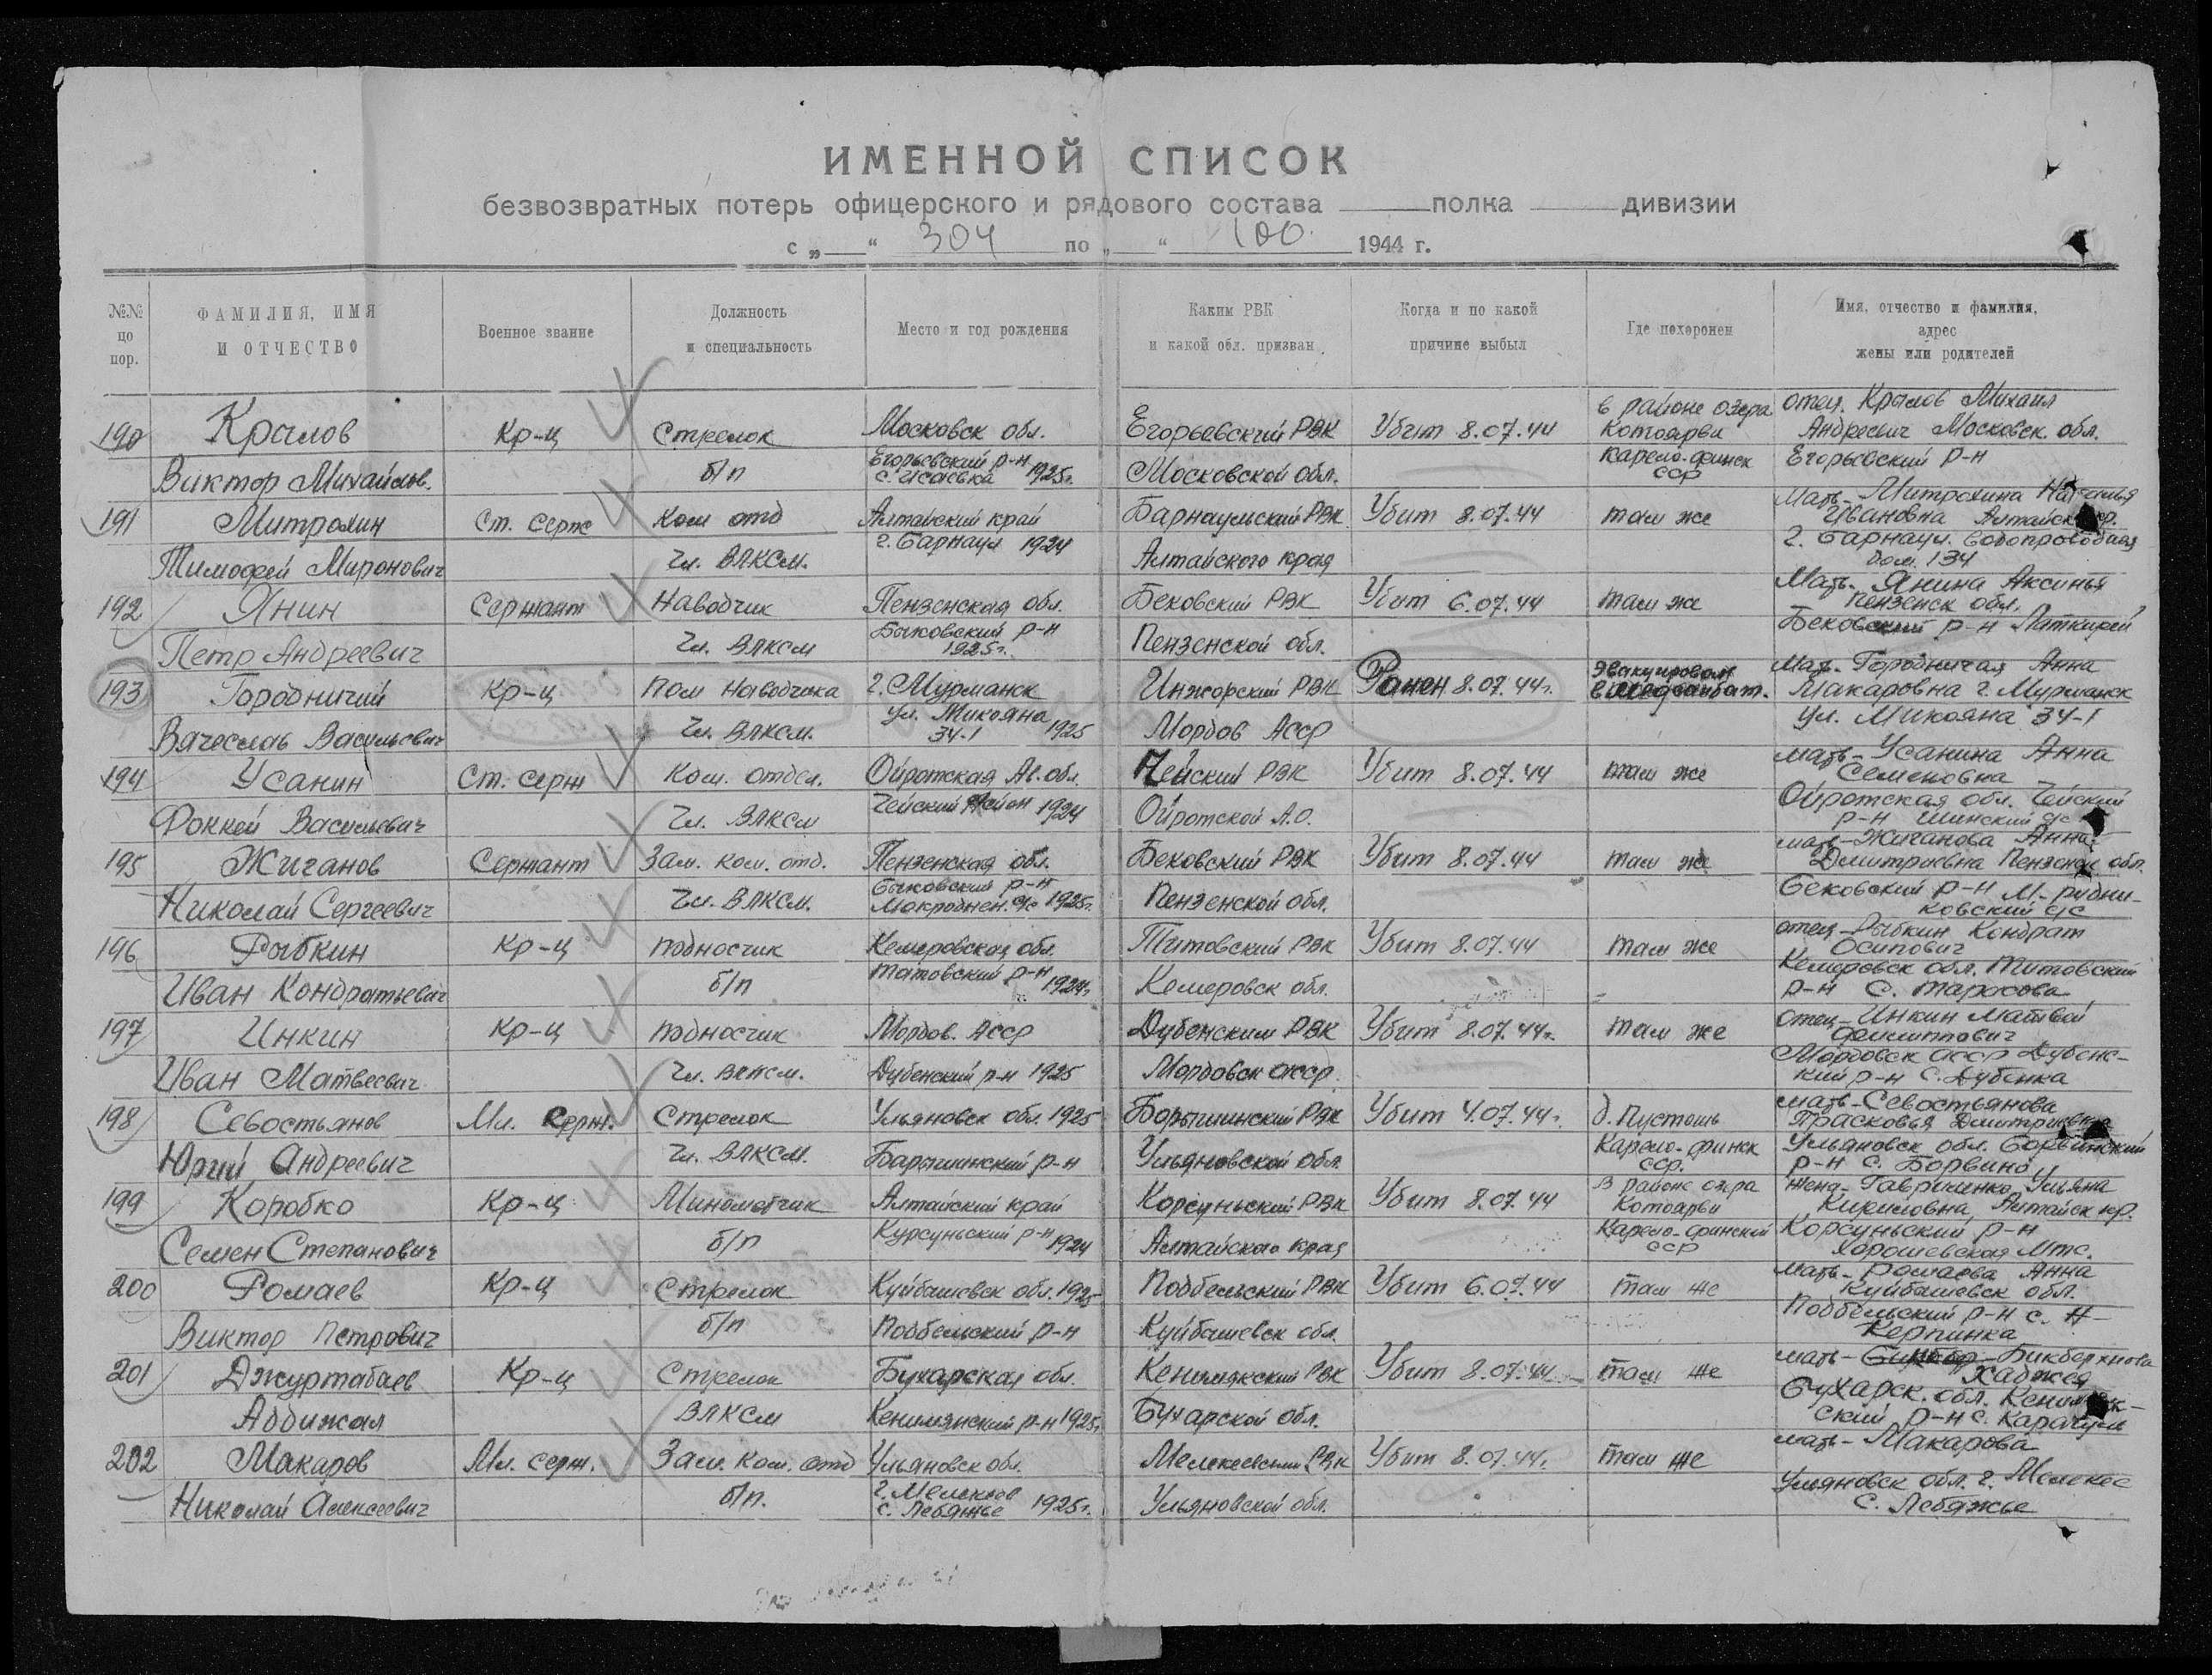 ИМЕННОЙ СПИСОК
безвозвратных потерь офицерского и рядового состава полка дивизии
с „ “ 304 по „ “ 100 1944 г.
№№ по пор.
ФАМИЛИЯ, ИМЯ И ОТЧЕСТВО
Военное звание
Должность и специальность
Место и год рождения
Каким РВК и какой обл. призван
Когда и по какой причине выбыл
Где похоронен
Имя, отчество и фамилия, адрес жены или родителей
190 Крылов Кр-ц Стрелок Московск обл. Егорьевский РВК Убит 8.07.44 в районе озера Котоярви отец. Крылов Михаил Андреевич Московск. обл.
Виктор Михайлов. б/п Егорьевский р-н с. Исаевка 1925г. Московской обл. Карело-финск ССР Егорьевский р-н
191 Митрохин Ст. серж Ком отд Алтайский край Барнаульский РВК Убит 8.07.44 там же Мать- Митрохина Наталья Ивановна
Тимофей Миронович Чл. ВЛКСМ. г. Барнаул 1924 Алтайского края г. Барнаул. Водопроводная дом. 134
192 Янин Сержант Наводчик Пензенская обл. Бековский РВК Убит 6.07.44 там же Мать- Янина Аксинья Пензенск обл.
Петр Андреевич Чл. ВЛКСМ Быковский р-н 1925г. Пензенской обл. Бековский р-н
193 Городничий Кр-ц Пом Наводчика г. Мурманск РВК Ранен 8.07.44г. Эвакуирован в Медсанбат. Мать- Городничая Анна Макаровна г. Мурманск
Вячеслав Васильевич Чл. ВЛКСМ. ул. Микояна 34-1 1925 Мордов АССР ул. Микояна 34-1
194 Усанин Ст. серж Ком. отдел. Ойротская Ав. обл. Чейский РВК Убит 8.07.44 там же мать- Усанина Анна Семеновна
Фокей Васильевич Чл. ВЛКСМ Чейский район 1924 Ойротской А.О. Ойротская обл. Чейский р-н
195 Жиганов Сержант Зам. ком. отд. Пензенская обл. Бековский РВК Убит 8.07.44 там же мать- Жиганова Анна Дмитриевна Пензенск обл.
Николай Сергеевич Чл. ВЛКСМ. Быковский р-н 1925г. Пензенской обл. Бековский р-н
196 Рыбкин Кр-ц подносчик Кемеровская обл. Титовский РВК Убит 8.07.44 там же отец- Рыбкин Кондрат Осипович
Иван Кондратьевич б/п Титовский р-н 1924г. Кемеровск обл. Кемеровск обл. Титовский р-н с. Тарасова
197 Инкин Кр-ц подносчик Мордов. АССР Дубенским РВК Убит 8.07.44г. там же отец- Инкин Матвей Филиппович
Иван Матвеевич Чл. ВЛКСМ. Дубенский р-н 1925 Мордовск АССР Мордовск АССР Дубенс-кий р-н с. Дубенка
198 Севостьянов Мл. серж. Стрелок Ульяновск обл. 1925 Барышинский РВК Убит 4.07.44г. д. Пустошь мать- Севостьянова Прасковья Дмитриевна
Юрий Андреевич Чл. ВЛКСМ. Барышинский р-н Ульяновской обл. Карело-финск ССР. Ульяновск обл. р-н с. Борвино
199 Коробко Кр-ц Минометчик Алтайский край Корсуньский РВК Убит 8.07.44 В районе озера Котоярви жена- Гавриленко Ульяна Кириловна Алтайск кр.
Семен Степанович б/п Курсуньский р-н 1924 Алтайского края Карело-финский ССР Корсуньский р-н Хорошевская МТС.
200 Ромаев Кр-ц Стрелок Куйбышевск обл. 1925 Подбельский РВК Убит 6.07.44 там же мать- Ромаева Анна Куйбышевск обл.
Виктор Петрович б/п Подбельский р-н Куйбышевск обл. Подбельский р-н с. Н-Керпинка
201 Джуртабаев Кр-ц Стрелок Бухарская обл. РВК Убит 8.07.44 там же мать- Хаджея
Аббижал ВЛКСМ р-н 1925г. Бухарской обл. Бухарск. обл. р-н с.
202 Макаров Мл. серж. Зам. Ком. отд Ульяновск обл. Мелекесским РВК Убит 8.07.44г. там же мать- Макарова
Николай Алексеевич б/п. г. Мелекесс с. Лебяжье 1925г. Ульяновской обл. Ульяновск обл. г. Мелекес с. Лебяжье